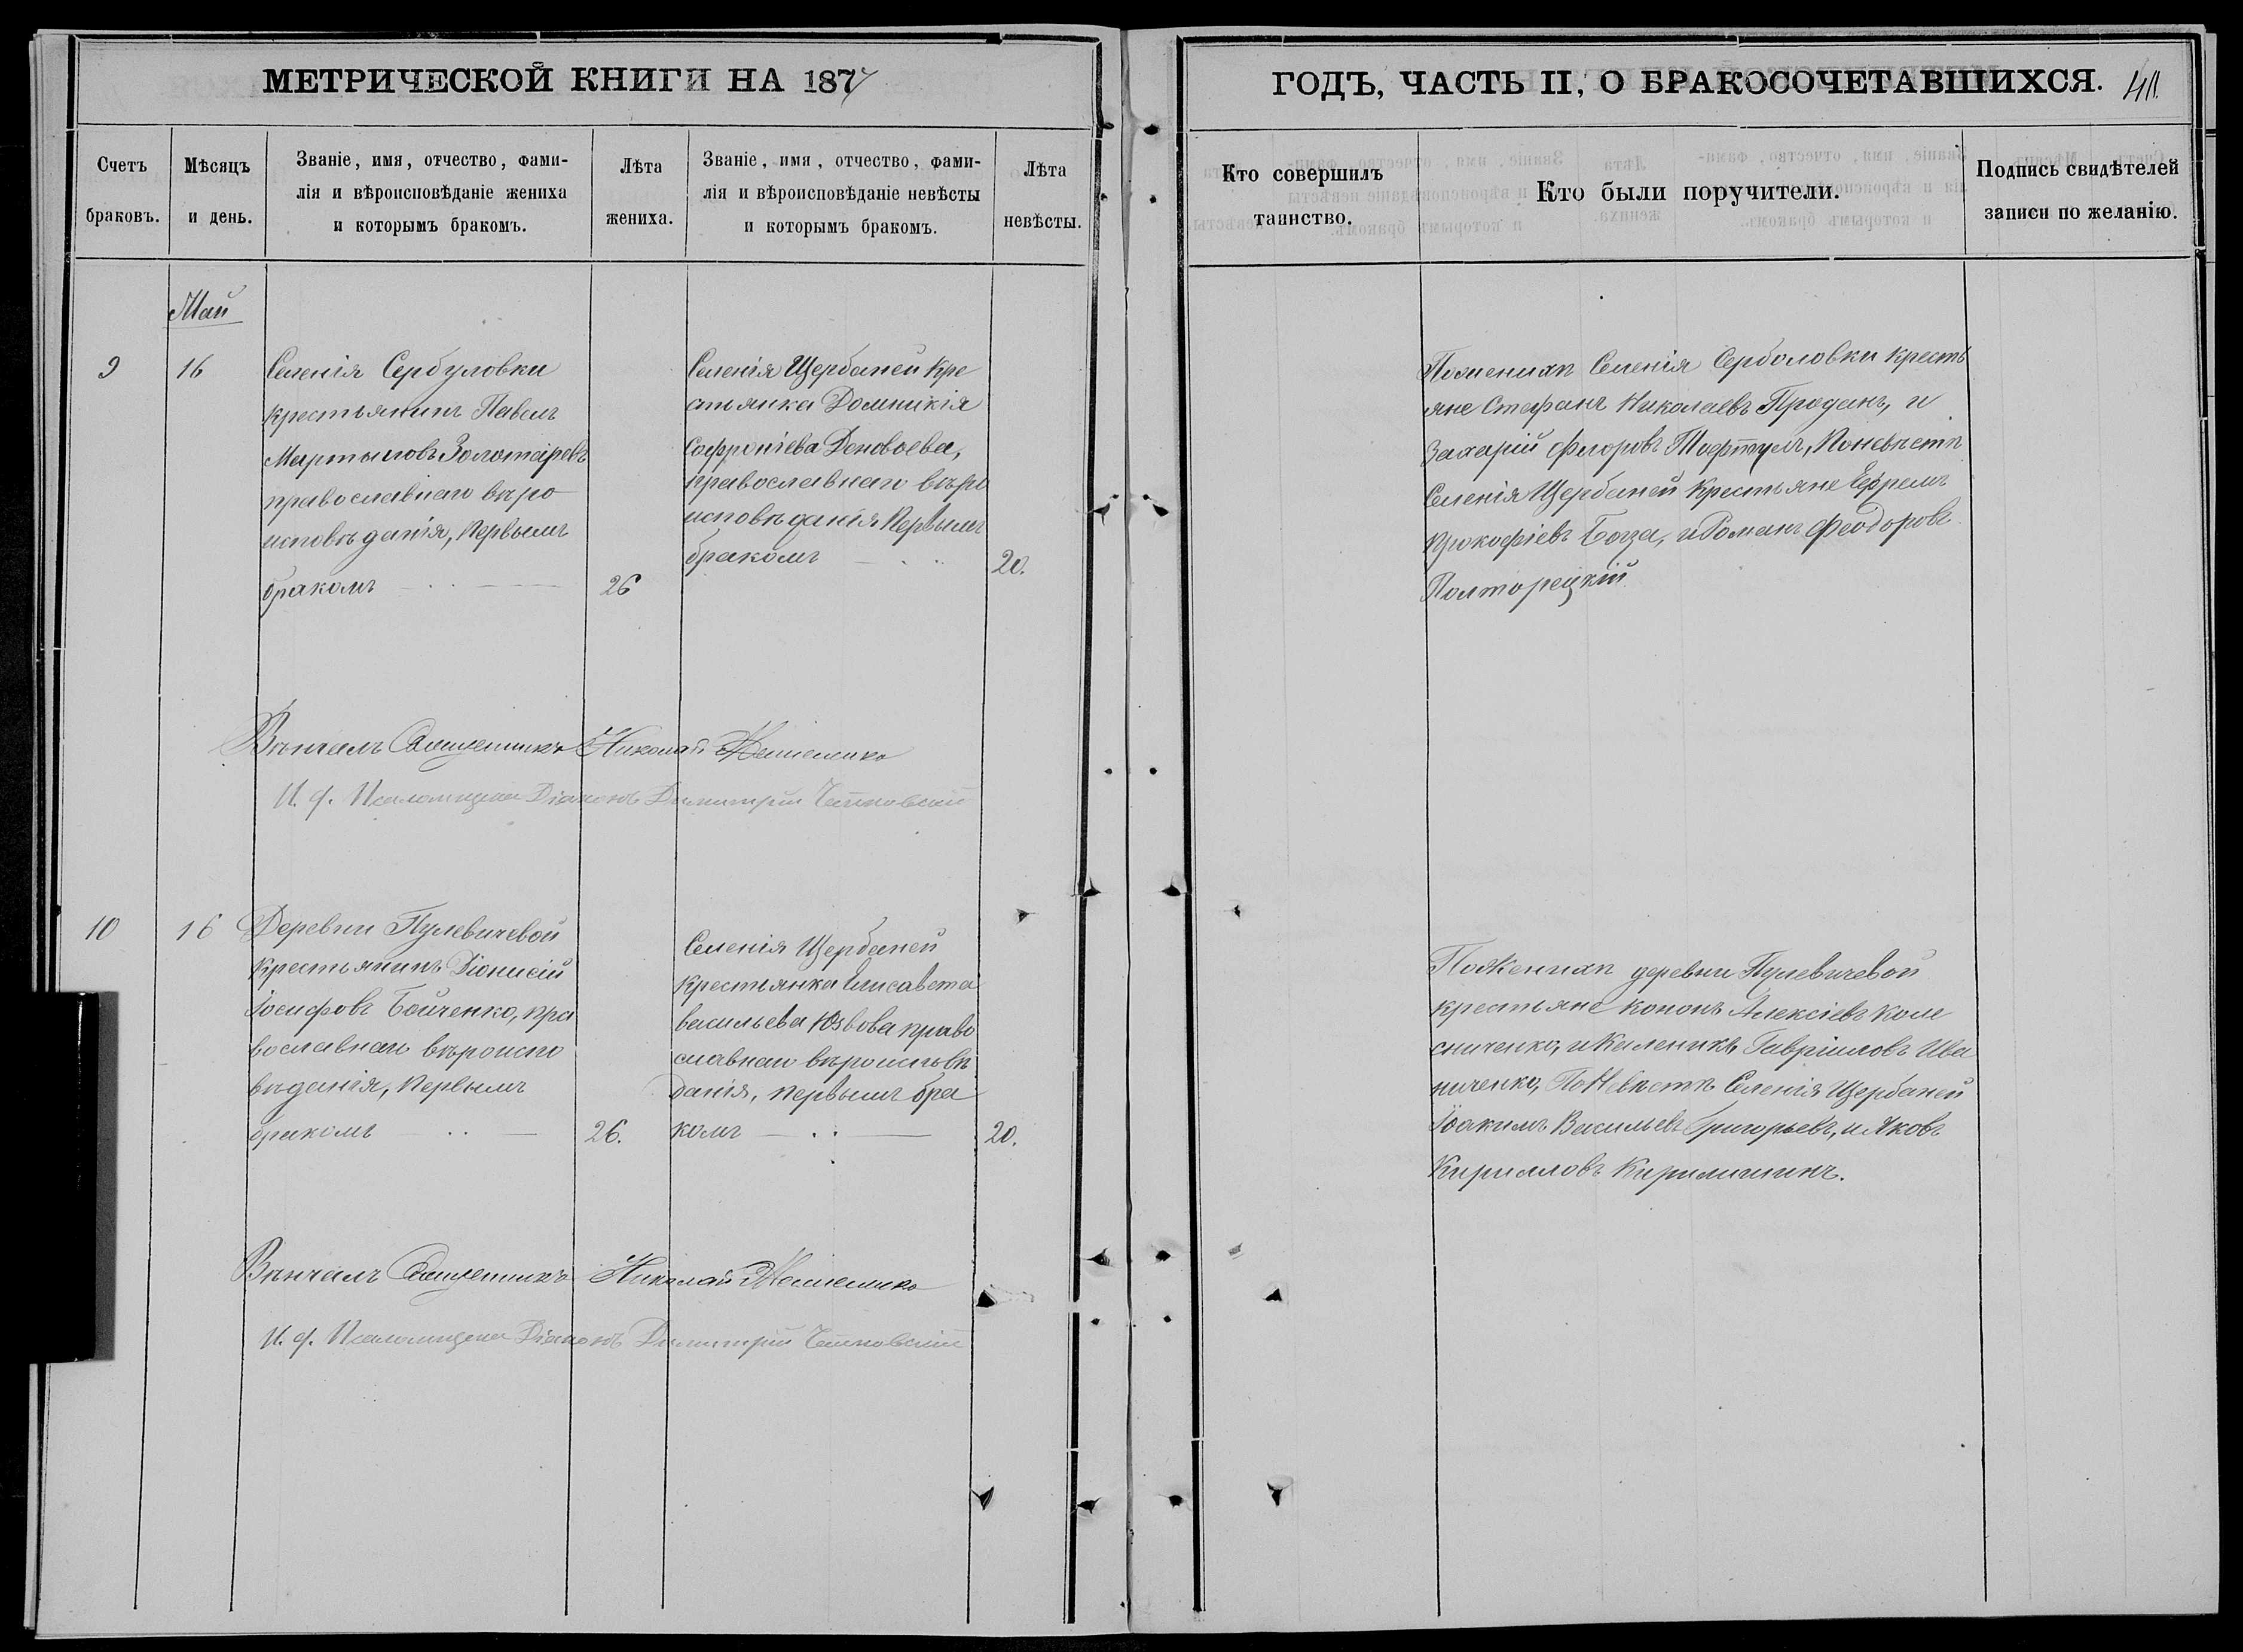 МЕТРИЧЕСКОЙ КНИГИ НА 1877
ГОДЪ, ЧАСТЬ II, О БРАКОСОЧЕТАВШИХСЯ.
Счетъ браковъ.
Мѣсяцъ и день.
Званіе, имя, отчество, фами-
лія и вѣроисповѣданіе жениха
и которымъ бракомъ.
Лѣта жениха.
Званіе, имя, отчество, фами-
лія и вѣроисповѣданіе невѣсты
и которымъ бракомъ.
Лѣта невѣсты.
Кто совершилъ
таинство.
Кто были поручители.
Подпись свидѣтелей
записи по желанію.
Май
9
16
Селенія Сербуловки
крестьянинъ Павелъ
Мартыновъ Золотаревъ
православнаго вѣро
исповѣданія, первымъ
бракомъ
26
Селенія Щербаней кре
стьянка Домникія
Софроніева
православнаго вѣро
исповѣданія первымъ
бракомъ
20.
По женихѣ Селенія Серболовки кресть
яне Стефанъ Николаевъ Проданъ, и
Захарій Флоровъ, По невѣстѣ
Селенія Щербаней крестьяне Ефремъ
Прокофіевъ Богза, и Романъ Феодоровъ
Полторецкій
Вѣнчалъ Священникъ Николай
И. д. Псаломщика Діаконъ Димитрій
10
16
Деревни Пулевичевой
крестьянинъ Діонисій
Іосифовъ Бойченко, пра
вославнаго вѣроиспо
вѣданія, первымъ
бракомъ
26.
Селенія Щербаней
крестьянка Елисавета
Васильева право
славнаго вѣроисповѣ
данія, первымъ бра
комъ
20.
По женихѣ деревни Пулевичевой
крестьяне Кононъ Алексіевъ Коле
сниченко, и Каленикъ Гавріиловъ Ива
ниченко, По невѣстѣ Селенія Щербаней
Іоакимъ Васильевъ Григорьевъ, и Яковъ
Кирилловъ Кирилишинъ.
Вѣнчалъ Священникъ Николай
И. д. Псаломщика Діаконъ Димитрій